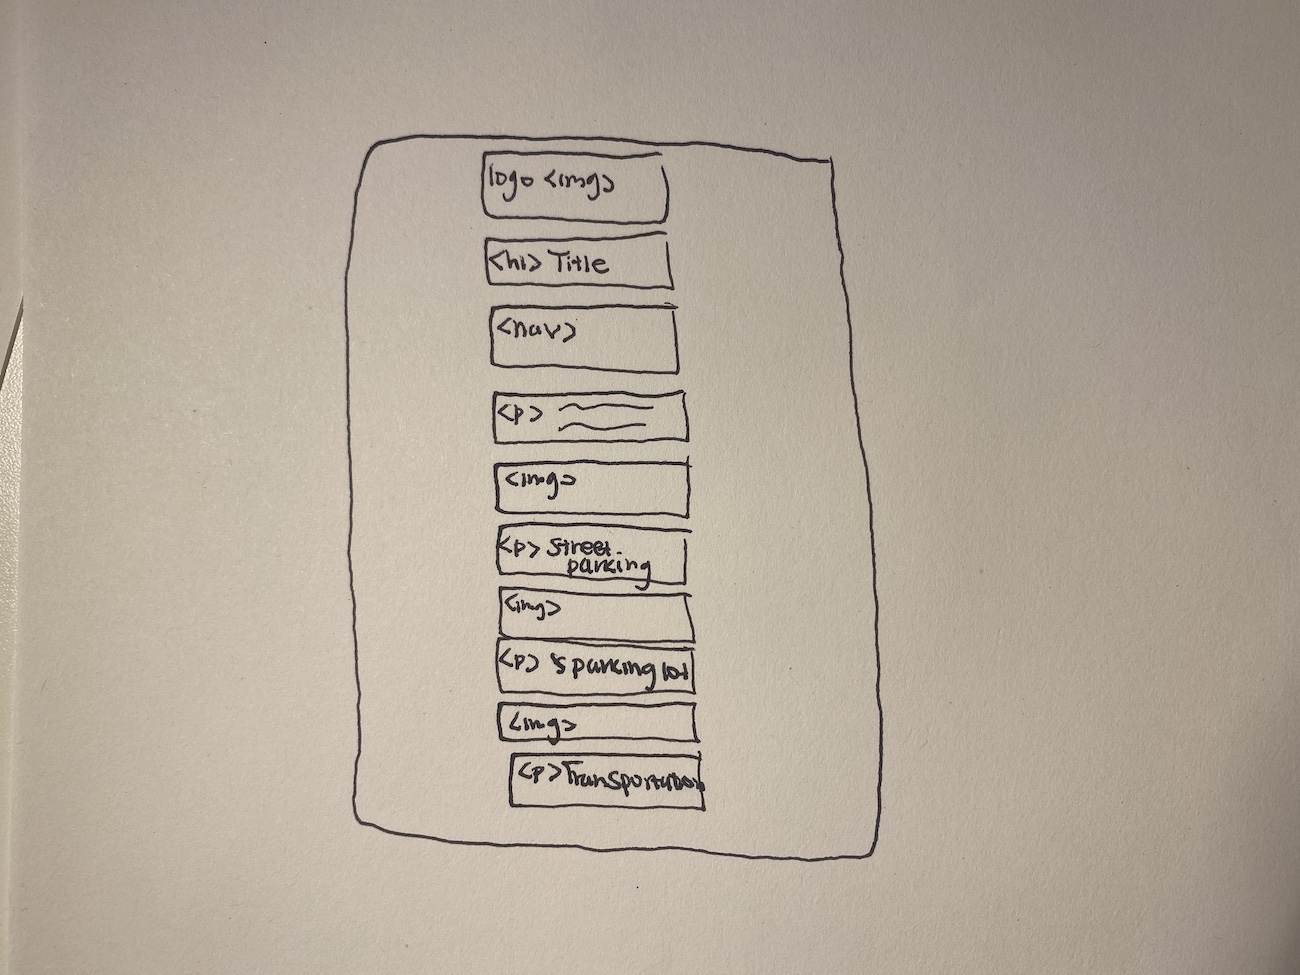 logo <img>
<h1> Title
<nav>
<p>
<img>
<p> street
parking
<img>
<p> parking lot
<img>
<p> Transportation